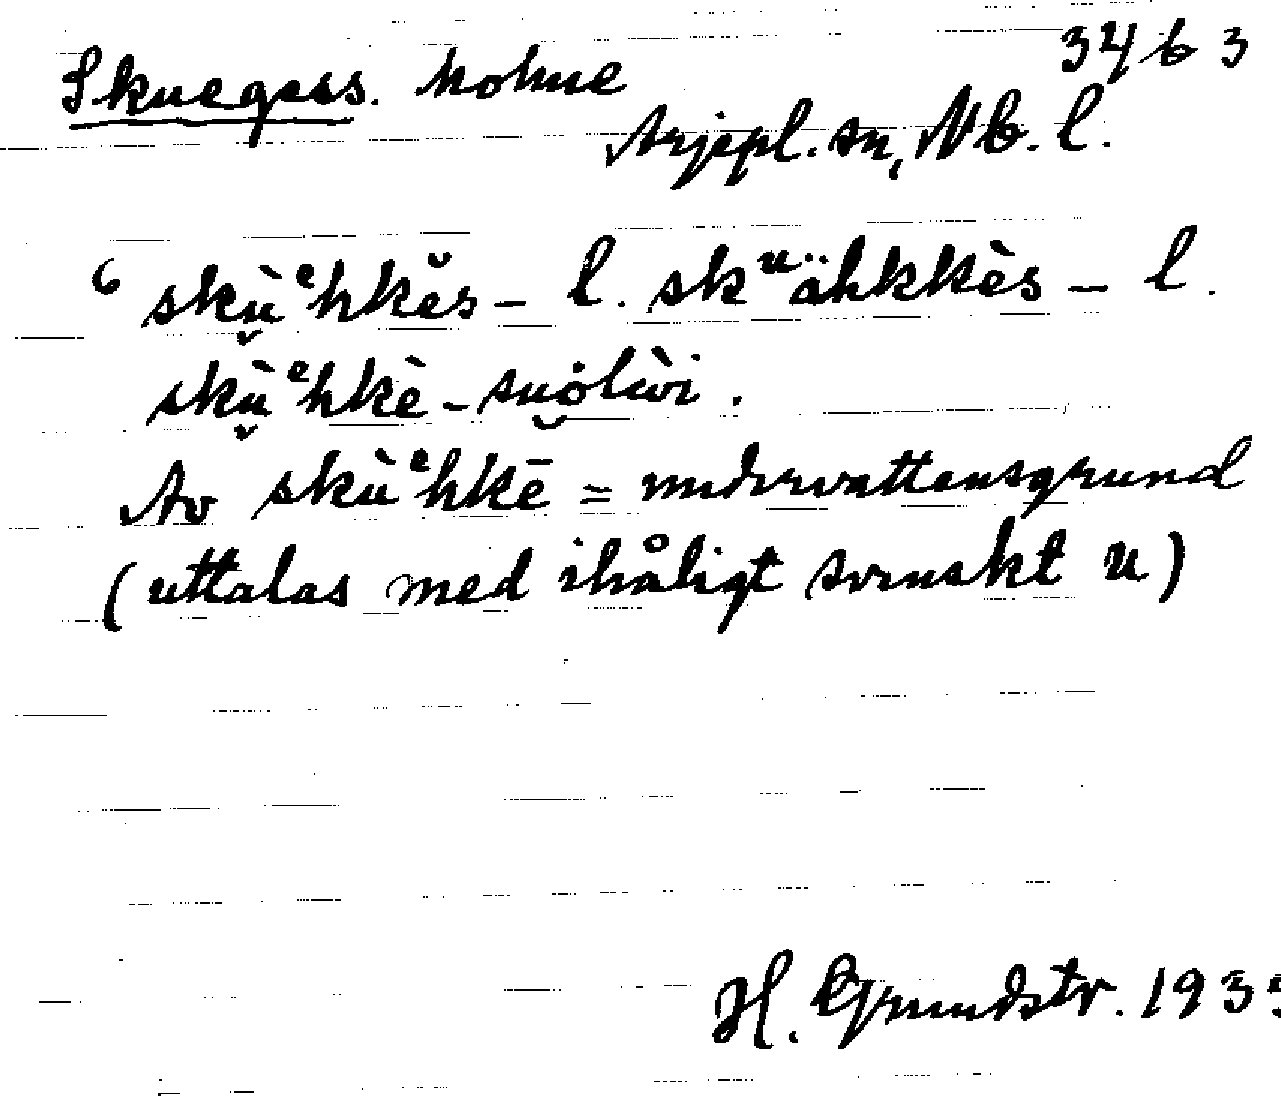 Skueqess. holme 3463
Arjepl. sn, Nb. l.
skù̯ᵉhkĕs- l. skᵘähkkès- l.
skù̯ᵉhkè-suo̯lùi.
Av skùᵉhkē = undervattensgrund
(uttalas med ihåligt svenskt u)
H. Grundstr. 193